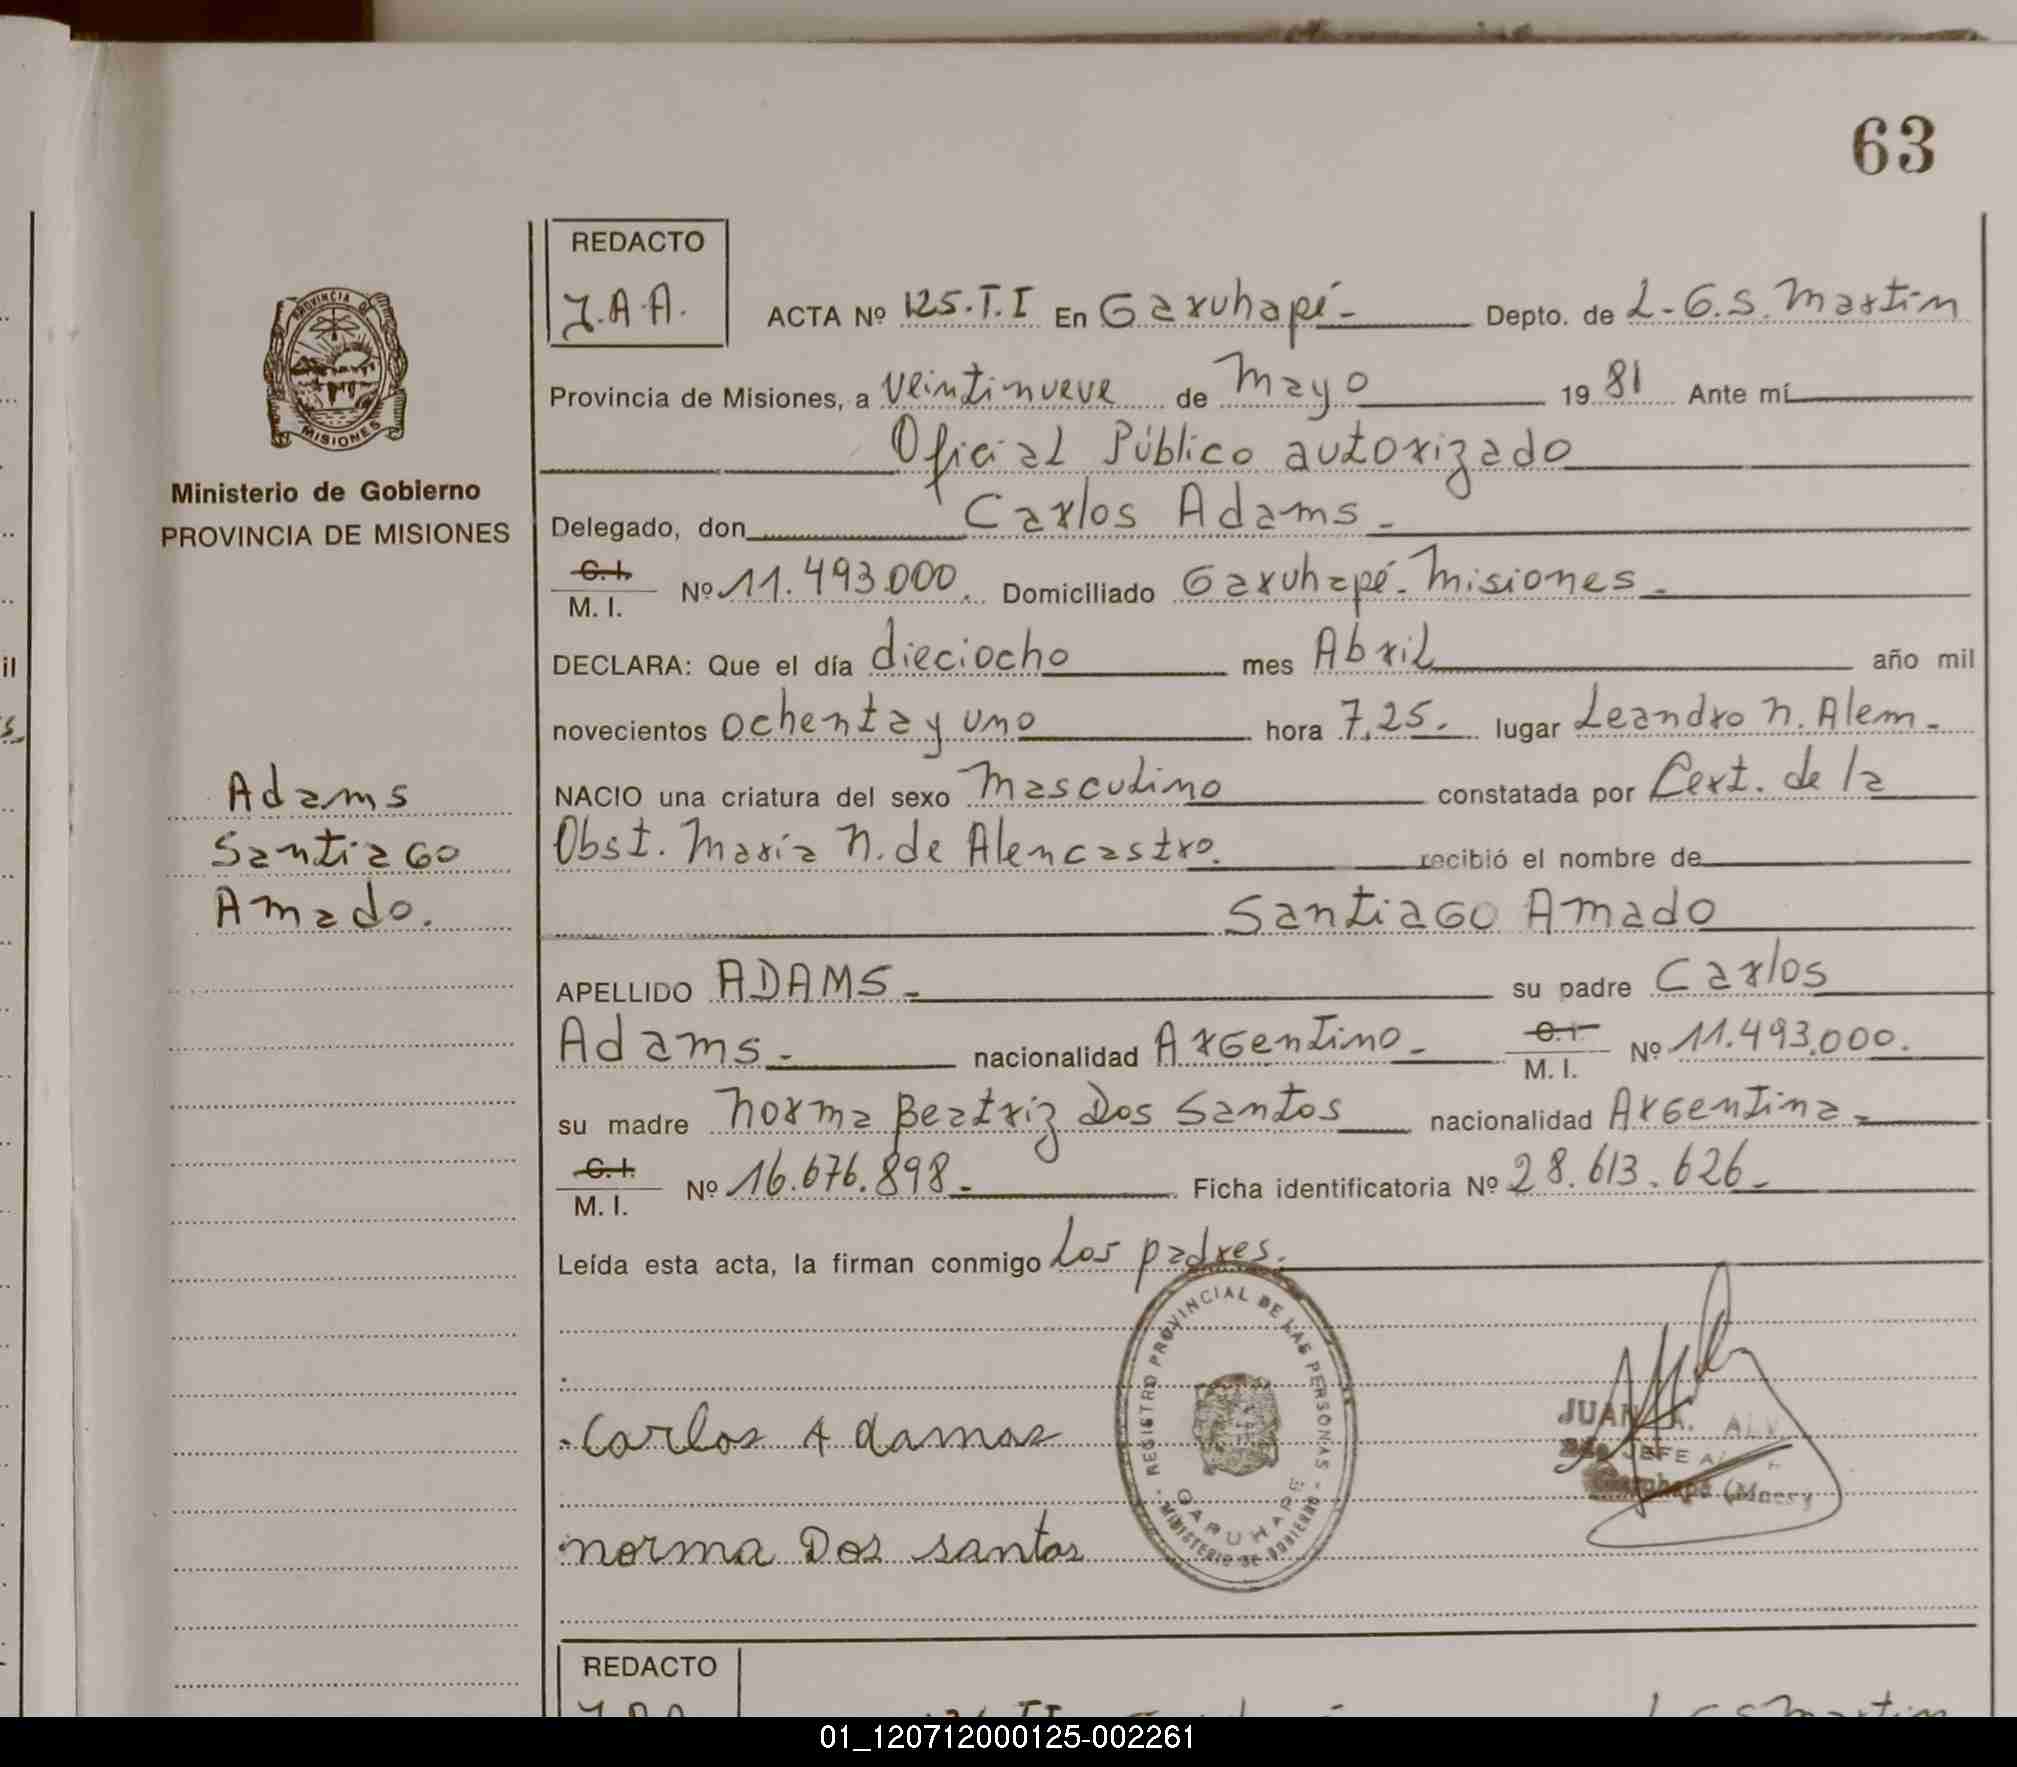 63
REDACTO
J.A.A.
ACTA Nº 125.T.I En Garuhapé- Depto. de L-G.S. Martín
Provincia de Misiones, a veintinueve de Mayo 19 81 Ante mí
Oficial Público autorizado
Delegado, don Carlos Adams-
C.I.
M. I. Nº 11.493.000. Domiciliado Garuhapé-Misiones-
DECLARA: Que el día dieciocho mes Abril año mil
novecientos ochenta y uno hora 7,25.- lugar Leandro N. Alem-
NACIO una criatura del sexo Masculino constatada por Cert. de la
Obst. María N. de Alencastro. recibió el nombre de
Santiago Amado
APELLIDO ADAMS- su padre Carlos
Adams- nacionalidad Argentino- C.I.
M. I. Nº 11.493.000.
su madre Norma Beatriz Dos Santos nacionalidad Argentina-
C.I.
M. I. Nº 16.676.898- Ficha identificatoria Nº 28.613.626-
Leída esta acta, la firman conmigo los padres.
Carlos Adamas
norma Dos santos
REGISTRO PROVINCIAL DE LAS PERSONAS
GARUHAPE
MINISTERIO DE GOBIERNO
JUAN A.
JEFE
Garuhapé
PROVINCIA DE
MISIONES
Ministerio de Gobierno
PROVINCIA DE MISIONES
Adams
Santiago
Amado.
il
REDACTO
01_120712000125-002261